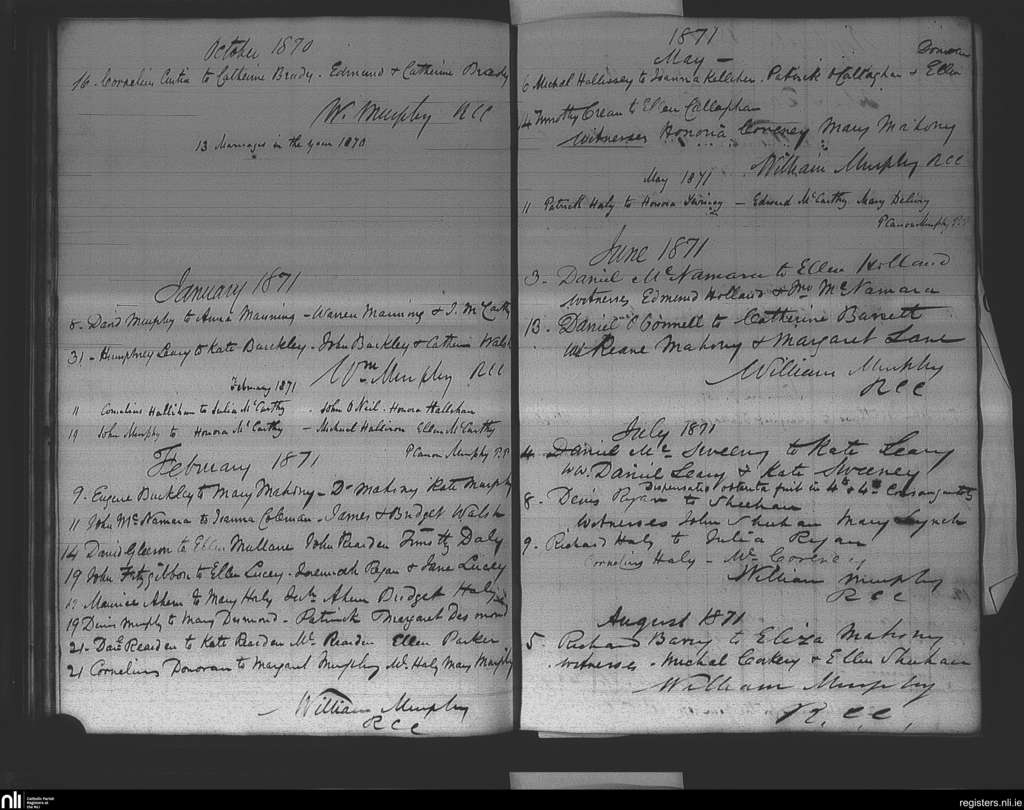 October 1870
16 - Cornelius to Catherine Brady - Edmund & Catherine Brady
W. Murphy RCC
13 Marriages in the year 1870
January 1871
8 - David Murphy to Anna Manning - Warren Manning & J. McCarthy
31 - Humphrey Leary to Kate Buckley - John Buckley & Catherine Walsh
Wm Murphy RCC
February 1871
11 Cornelius Hallihan to Julia McCarthy - John O Neil - Honora Hallihan
19 John Murphy to Honora McCarthy - Michael Ellen McCarthy
P Canon Murphy P.P.
February 1871
9 - Eugene Buckley to Mary Mahony - Mahony Kate Murphy
11 John McNamara to Joanna Coleman - James & Bridget Walsh
14 David Gleeson to Ellen Mullane John Reardon Timothy Daly
19 John Fitzgibbon to Ellen Lucey - Jeremiah Ryan & Jane Lucey
Maurice Ahern to Mary Haly Ahern Bridget Haly
19 Denis Murphy to Mary Desmond - Patrick Margaret Desmond
21 - Danl Reardon to Kate Reardon Ml Reardon Ellen Parker
21 Cornelius Donovan to Margaret Murphy Ml Haly Mary Murphy
William Murphy
RCC
1871
May -
Donovan
6 Michal Hallissey to Joanna Kelliher - Patrick O'Callaghan & Ellen
14 Timothy Crean to Ellen Callaghan
Witnesses Honoria Coveney Mary Mahony
William Murphy RCC
May 1871
11 Patrick Haly to Honora - Edward McCarthy Mary
P Canon Murphy P.P.
June 1871
3 - Daniel McNamara to Ellen Holland
Witnesses Edmund Holland & McNamara
13 - Daniel O'Connell to Catherine Barrett
Keane Mahony & Margaret Lane
William Murphy
RCC
July 1871
4 - Daniel Mc Sweeney to Kate Leary
W.W. Daniel Leary & Kate Sweeney
Dispensatio obtenta fuit in 4to & 4to Consanguinity
8 - Denis Ryan to Sheehan
Witnesses John Sheehan Mary Lynch
9 - Richard Haly to Julia Ryan
Cornelius Haly -
William Murphy
RCC
August 1871
5 - Richard Barry to Eliza Mahony
Witnesses - Michal Corkery & Ellen Sheehan
William Murphy
R.CC.
nli Catholic Parish Registers at the NLI
registers.nli.ie